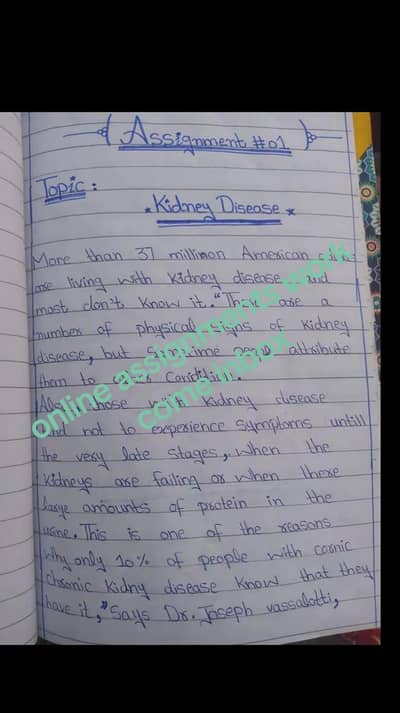 Assignment #01
Topic :
Kidney Disease
More than 37 million American
are living with kidney disease and
most don't know it. "There are a
number of physical signs of kidney
disease, but sometime people attribute
them to other condition.
Also those with kidney disease
tend not to experience symptoms untill
the very late stages, when the
kidneys are failing or when there
large amounts of protein in the
urine. This is one of the reasons
why only 10% of people with
chronic kidny disease know that they
have it," says Dr. Joseph vassalotti,
online assignments work
come inbox